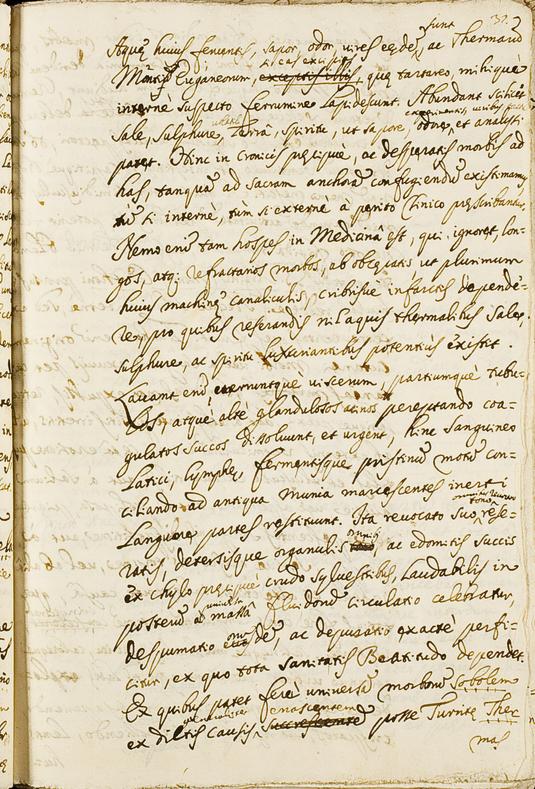 37.
sunt
Aquę huius feruentis, sapor, odor, uires eędẽ, ac Thermarũ
Montis Euganeorum, exceptis illis, quę tartareo, mihique
interne suspecto ferrumine lapidescunt. Abundant scilicet
Sale, Sulphure, Terrâ, spiritu, ut sapore, odore, et analysi
patet. Hinc in cronicis pręcipuè, ac desperatis morbis ad
has, tanquã ad sacram anchorã confugiendũ existimamus
tũ si internè, tùm si externè à perito Clinico pręscribantur.
Nemo enĩ tam hospes in Medicinâ est, qui ignoret, lon=
gos, atq; refractarios morbos, ab obcęcatis ut plurimum
huius machinę canaliculis, cribrisue infarctis dependê=
re; pro quibus reserandis nil aquis thermalibus sale,
sulphure, ac spiritu luxuriantibus potentius existit.
Lauant enĩ uiscerum, partiumque tubu=
los, atque altè glandulosos acinos pereptando coa=
gulatos succos dissoluunt, et urgent, hinc sanguineo
latici, lymphę, fermentisque pristinũ motũ con=
ciliando ad antiqua munia marcescentes inerti
languore partes restituunt. Ita reuocato suo tono, rese=
ratis, detersisque organulis ac edomitis succis
ex chylo pręcipuè crudo syluestribus, laudabilis in
posterũ à massâ fluidorũ circulatio celebratur
despumatio ac depuratio exactè perfi=
citur, ex quo tota Sanitatis Beatitudo dependet.
Ex quibus patet ferè uniuersã morborũ Sobolem
ex dictis causis enascentem succrescentẽ posse Turritę Ther
mas